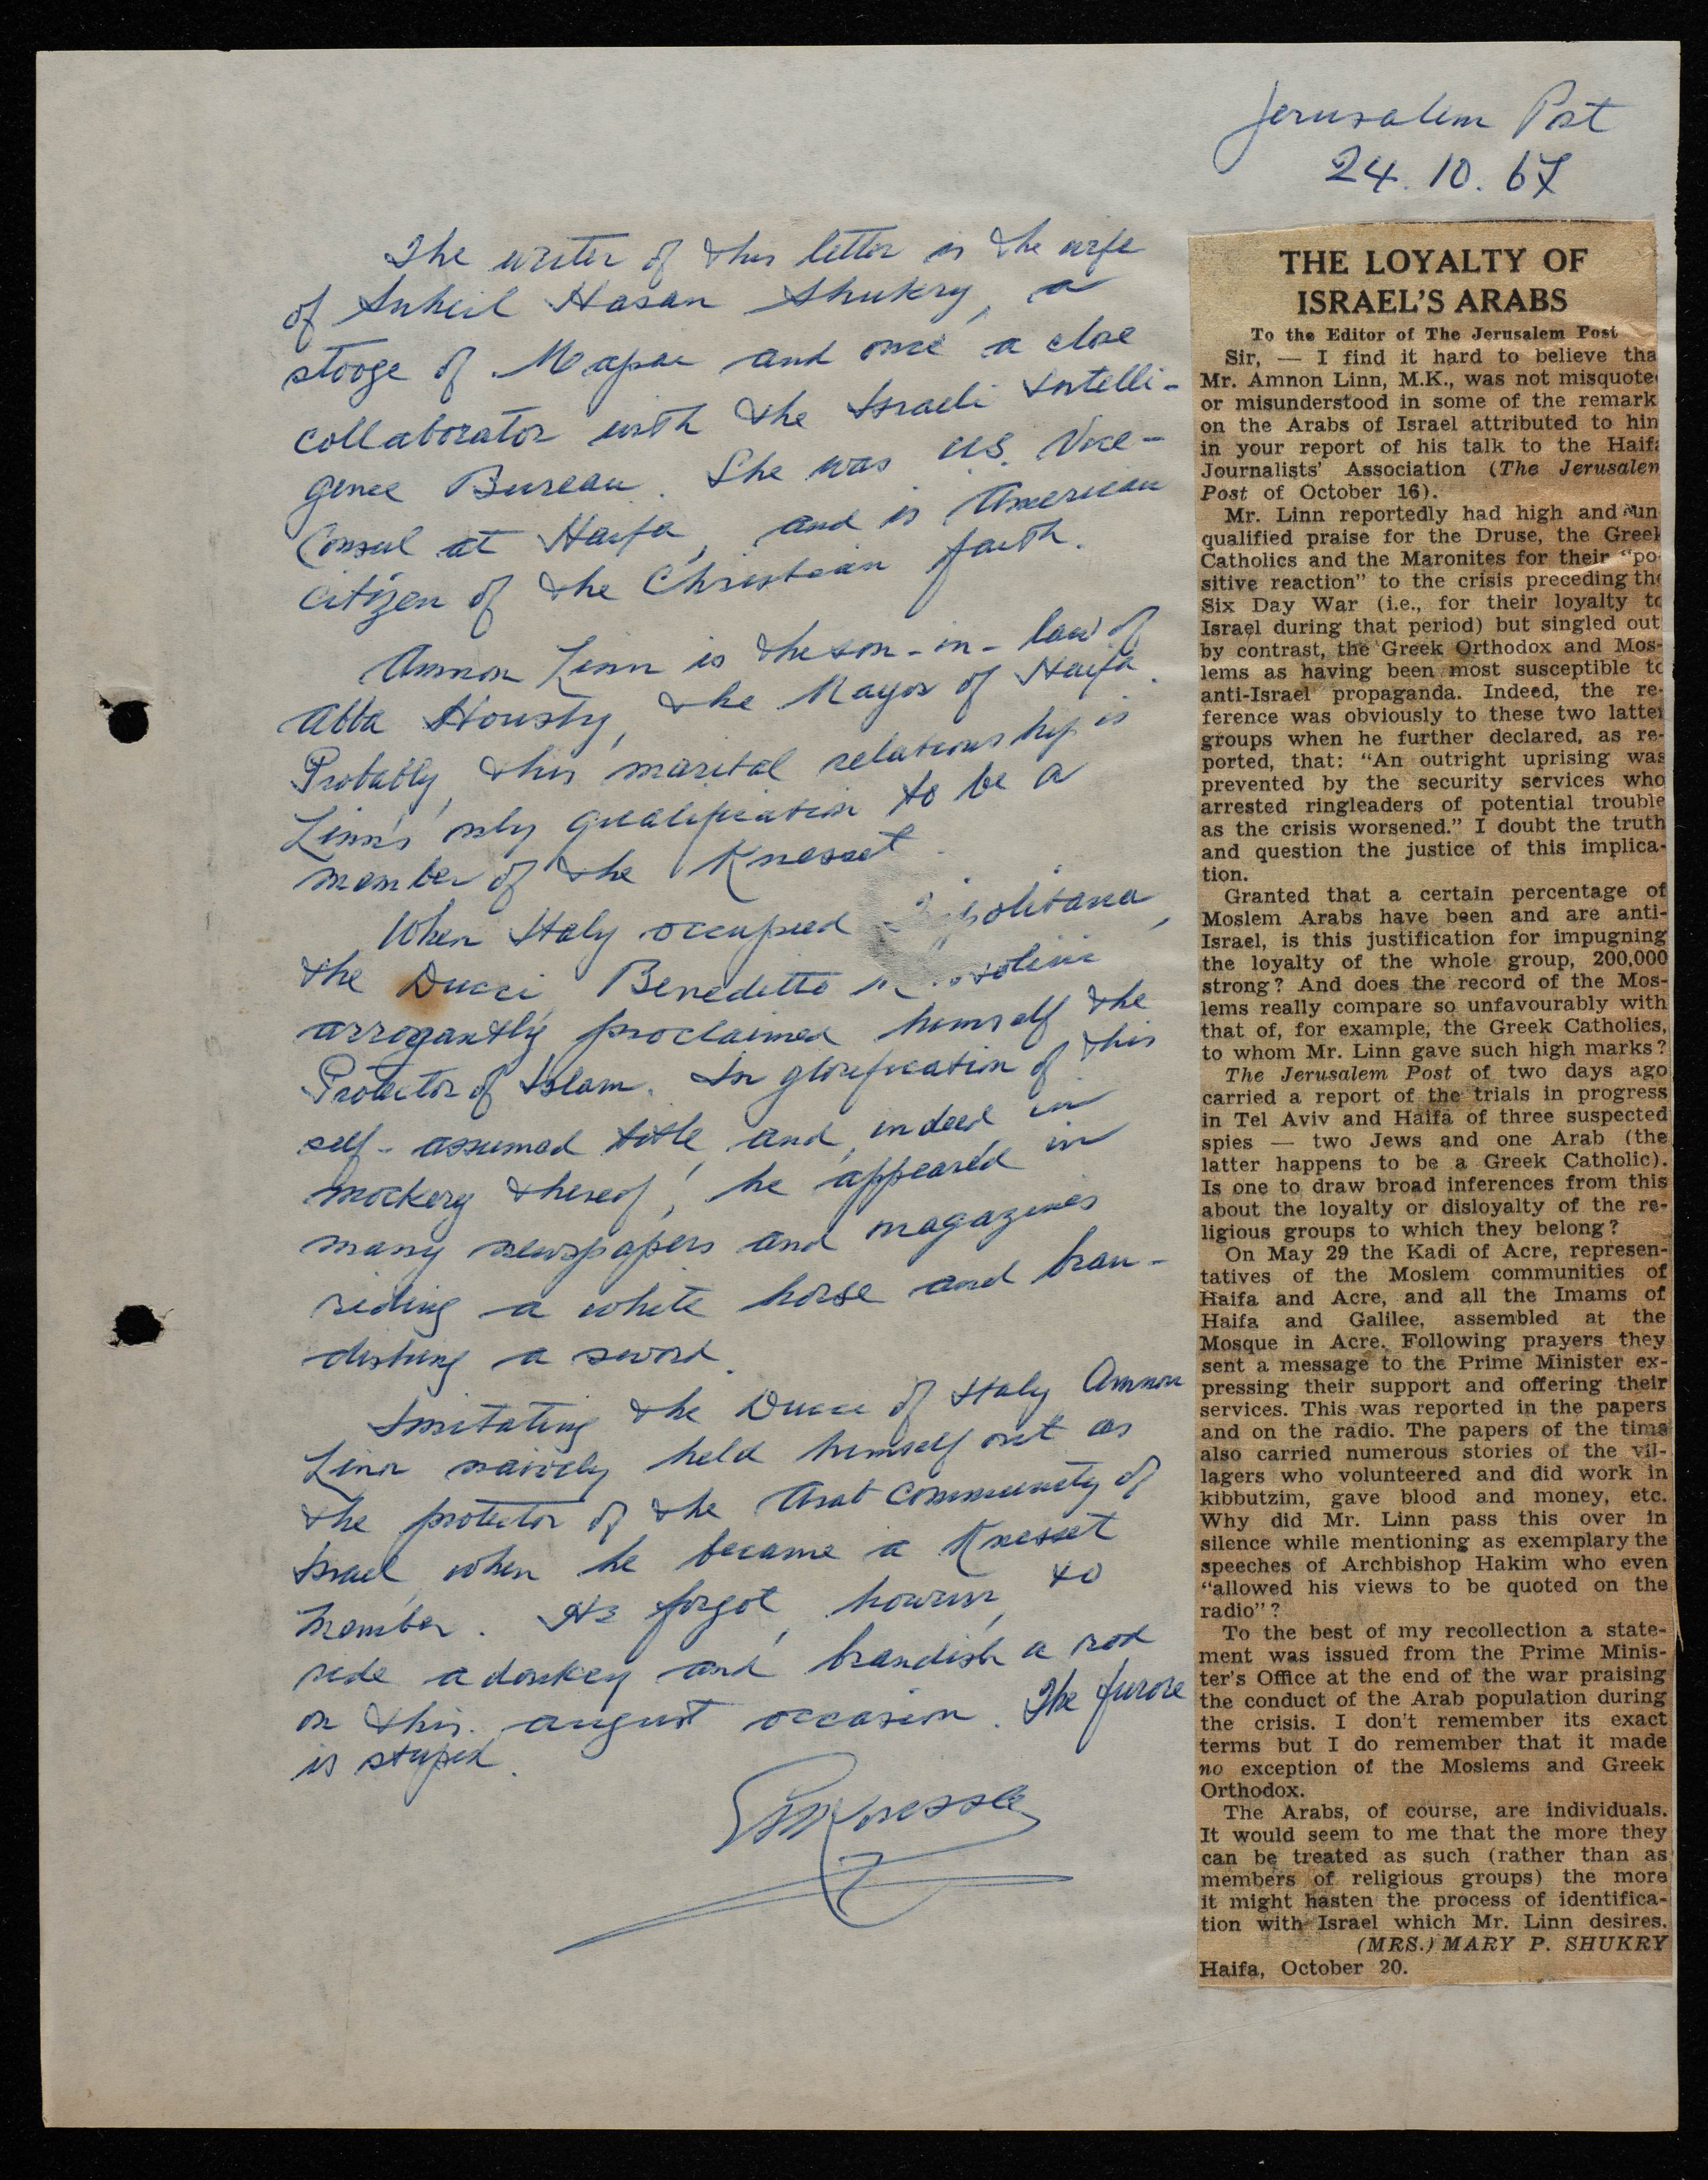 Jerusalem Post
24.10.67
The writer of this letter is the wife
of Suheil Hasan Shukry, a
stooge of Mapae and once a close
collaborator with the Israeli Intelli-
gence Bureau. She was U.S. Vice-
Consul at Haifa, and is American
citizen of the Christian faith.
Amnon Linn is the son-in-law of
Abba Housty, the Mayor of Haifa.
Probably, this marital relationship is
Linn's only qualification to be a
member of the Knesset.
When Italy occupied Tripolitana,
the Ducci Benedetto Mussolini
arrogantly proclaimed himself the
Protector of Islam. In glorification of this
self-assumed title, and, indeed, in
mockery thereof, he appeared in
many newspapers and magazines
riding a white horse and bran-
dishing a sword.
Imitating the Ducce of Italy Amnon
Linn naively held himself out as
the protector of the Arab community of
Israel, when he became a Knesset
member. He forgot, however, to
ride a donkey and brandish a rod
on this august occasion. The furore
is stupid.
THE LOYALTY OF
ISRAEL'S ARABS
To the Editor of The Jerusalem Post
Sir, — I find it hard to believe tha
Mr. Amnon Linn, M.K., was not misquote
or misunderstood in some of the remark
on the Arabs of Israel attributed to hin
in your report of his talk to the Haifa
Journalists' Association (The Jerusalem
Post of October 16).
Mr. Linn reportedly had high and un
qualified praise for the Druse, the Greek
Catholics and the Maronites for their "po-
sitive reaction" to the crisis preceding the
Six Day War (i.e., for their loyalty to
Israel during that period) but singled out
by contrast, the Greek Orthodox and Mos-
lems as having been most susceptible to
anti-Israel propaganda. Indeed, the re-
ference was obviously to these two latter
groups when he further declared, as re-
ported, that: "An outright uprising was
prevented by the security services who
arrested ringleaders of potential trouble
as the crisis worsened." I doubt the truth
and question the justice of this implica-
tion.
Granted that a certain percentage of
Moslem Arabs have been and are anti-
Israel, is this justification for impugning
the loyalty of the whole group, 200,000
strong? And does the record of the Mos-
lems really compare so unfavourably with
that of, for example, the Greek Catholics,
to whom Mr. Linn gave such high marks?
The Jerusalem Post of two days ago
carried a report of the trials in progress
in Tel Aviv and Haifa of three suspected
spies — two Jews and one Arab (the
latter happens to be a Greek Catholic).
Is one to draw broad inferences from this
about the loyalty or disloyalty of the re-
ligious groups to which they belong?
On May 29 the Kadi of Acre, represen-
tatives of the Moslem communities of
Haifa and Acre, and all the Imams of
Haifa and Galilee, assembled at the
Mosque in Acre. Following prayers they
sent a message to the Prime Minister ex-
pressing their support and offering their
services. This was reported in the papers
and on the radio. The papers of the time
also carried numerous stories of the vil-
lagers who volunteered and did work in
kibbutzim, gave blood and money, etc.
Why did Mr. Linn pass this over in
silence while mentioning as exemplary the
speeches of Archbishop Hakim who even
"allowed his views to be quoted on the
radio"?
To the best of my recollection a state-
ment was issued from the Prime Minis-
ter's Office at the end of the war praising
the conduct of the Arab population during
the crisis. I don't remember its exact
terms but I do remember that it made
no exception of the Moslems and Greek
Orthodox.
The Arabs, of course, are individuals.
It would seem to me that the more they
can be treated as such (rather than as
members of religious groups) the more
it might hasten the process of identifica-
tion with Israel which Mr. Linn desires.
(MRS.) MARY P. SHUKRY
Haifa, October 20.